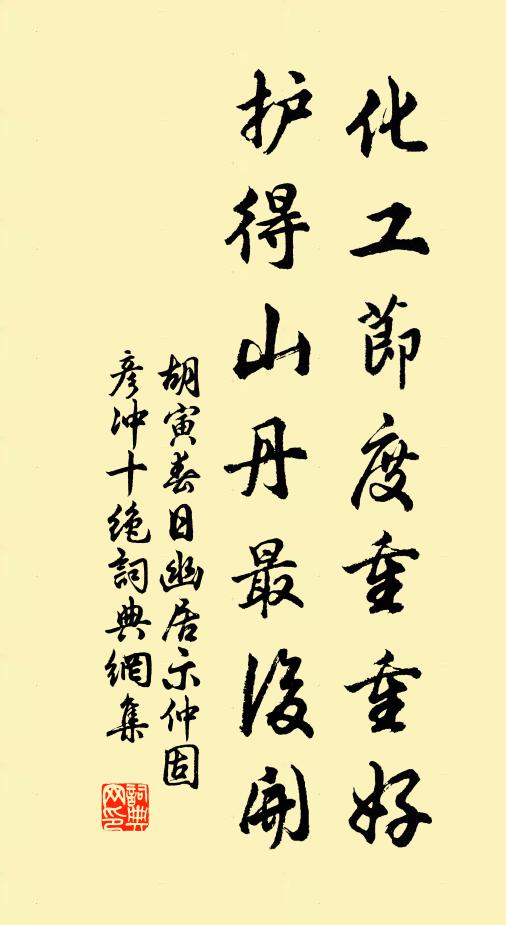 化工節度重重好
护得山丹最後開
胡寅春日幽居示仲固
彦冲十绝詞典網集
詞典網印